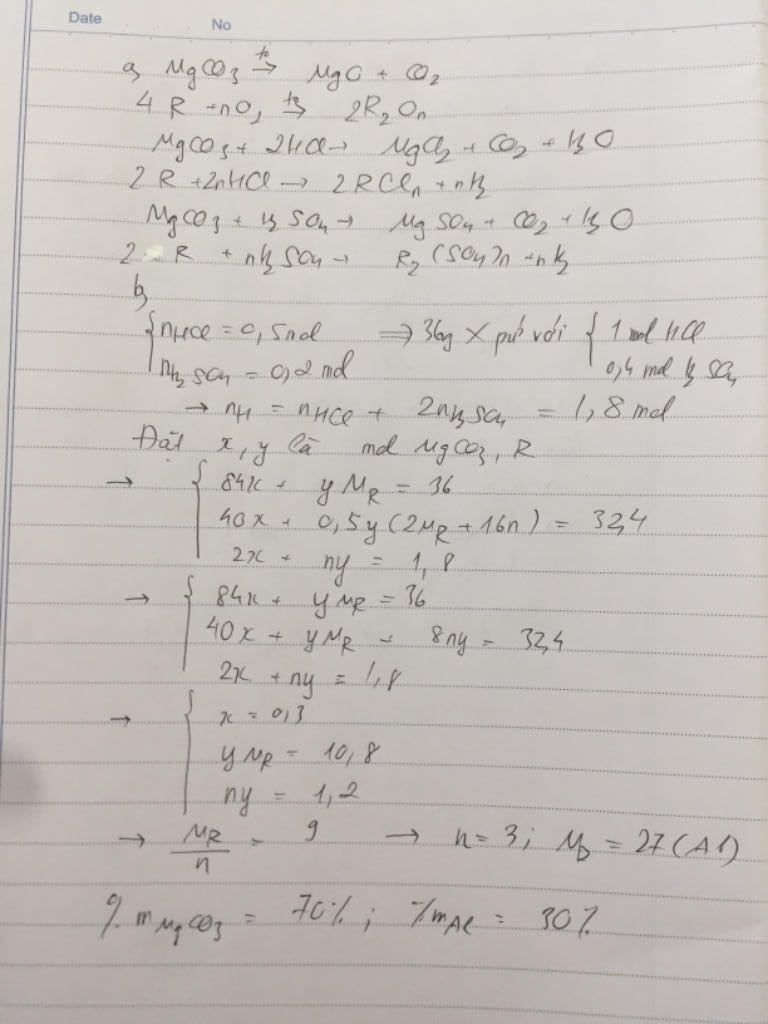 Date No
a, MgCO₃ t° → MgO + CO₂
4 R + nO₂ t° → 2R₂Oₙ
MgCO₃ + 2HCl → MgCl₂ + CO₂ + H₂O
2 R + 2nHCl → 2RClₙ + nH₂
MgCO₃ + H₂SO₄ → MgSO₄ + CO₂ + H₂O
2 R + nH₂SO₄ → R₂(SO₄)n + nH₂
b,
{ nHCl = 0,5 mol ⇒ 36g X pứ với { 1 mol HCl
nH₂SO₄ = 0,2 mol 0,4 mol H₂SO₄
→ nH = nHCl + 2nH₂SO₄ = 1,8 mol
Đặt x, y là mol MgCO₃, R
→ { 84x + yMR = 36
40x + 0,5y(2MR + 16n) = 32,4
2x + ny = 1,8
→ { 84x + yMR = 36
40x + yMR - 8ny = 32,4
2x + ny = 1,8
→ { x = 0,3
yMR = 10,8
ny = 1,2
→ MR/n = 9 → n = 3; MR = 27 (Al)
% mMgCO₃ = 70%; %mAl = 30%